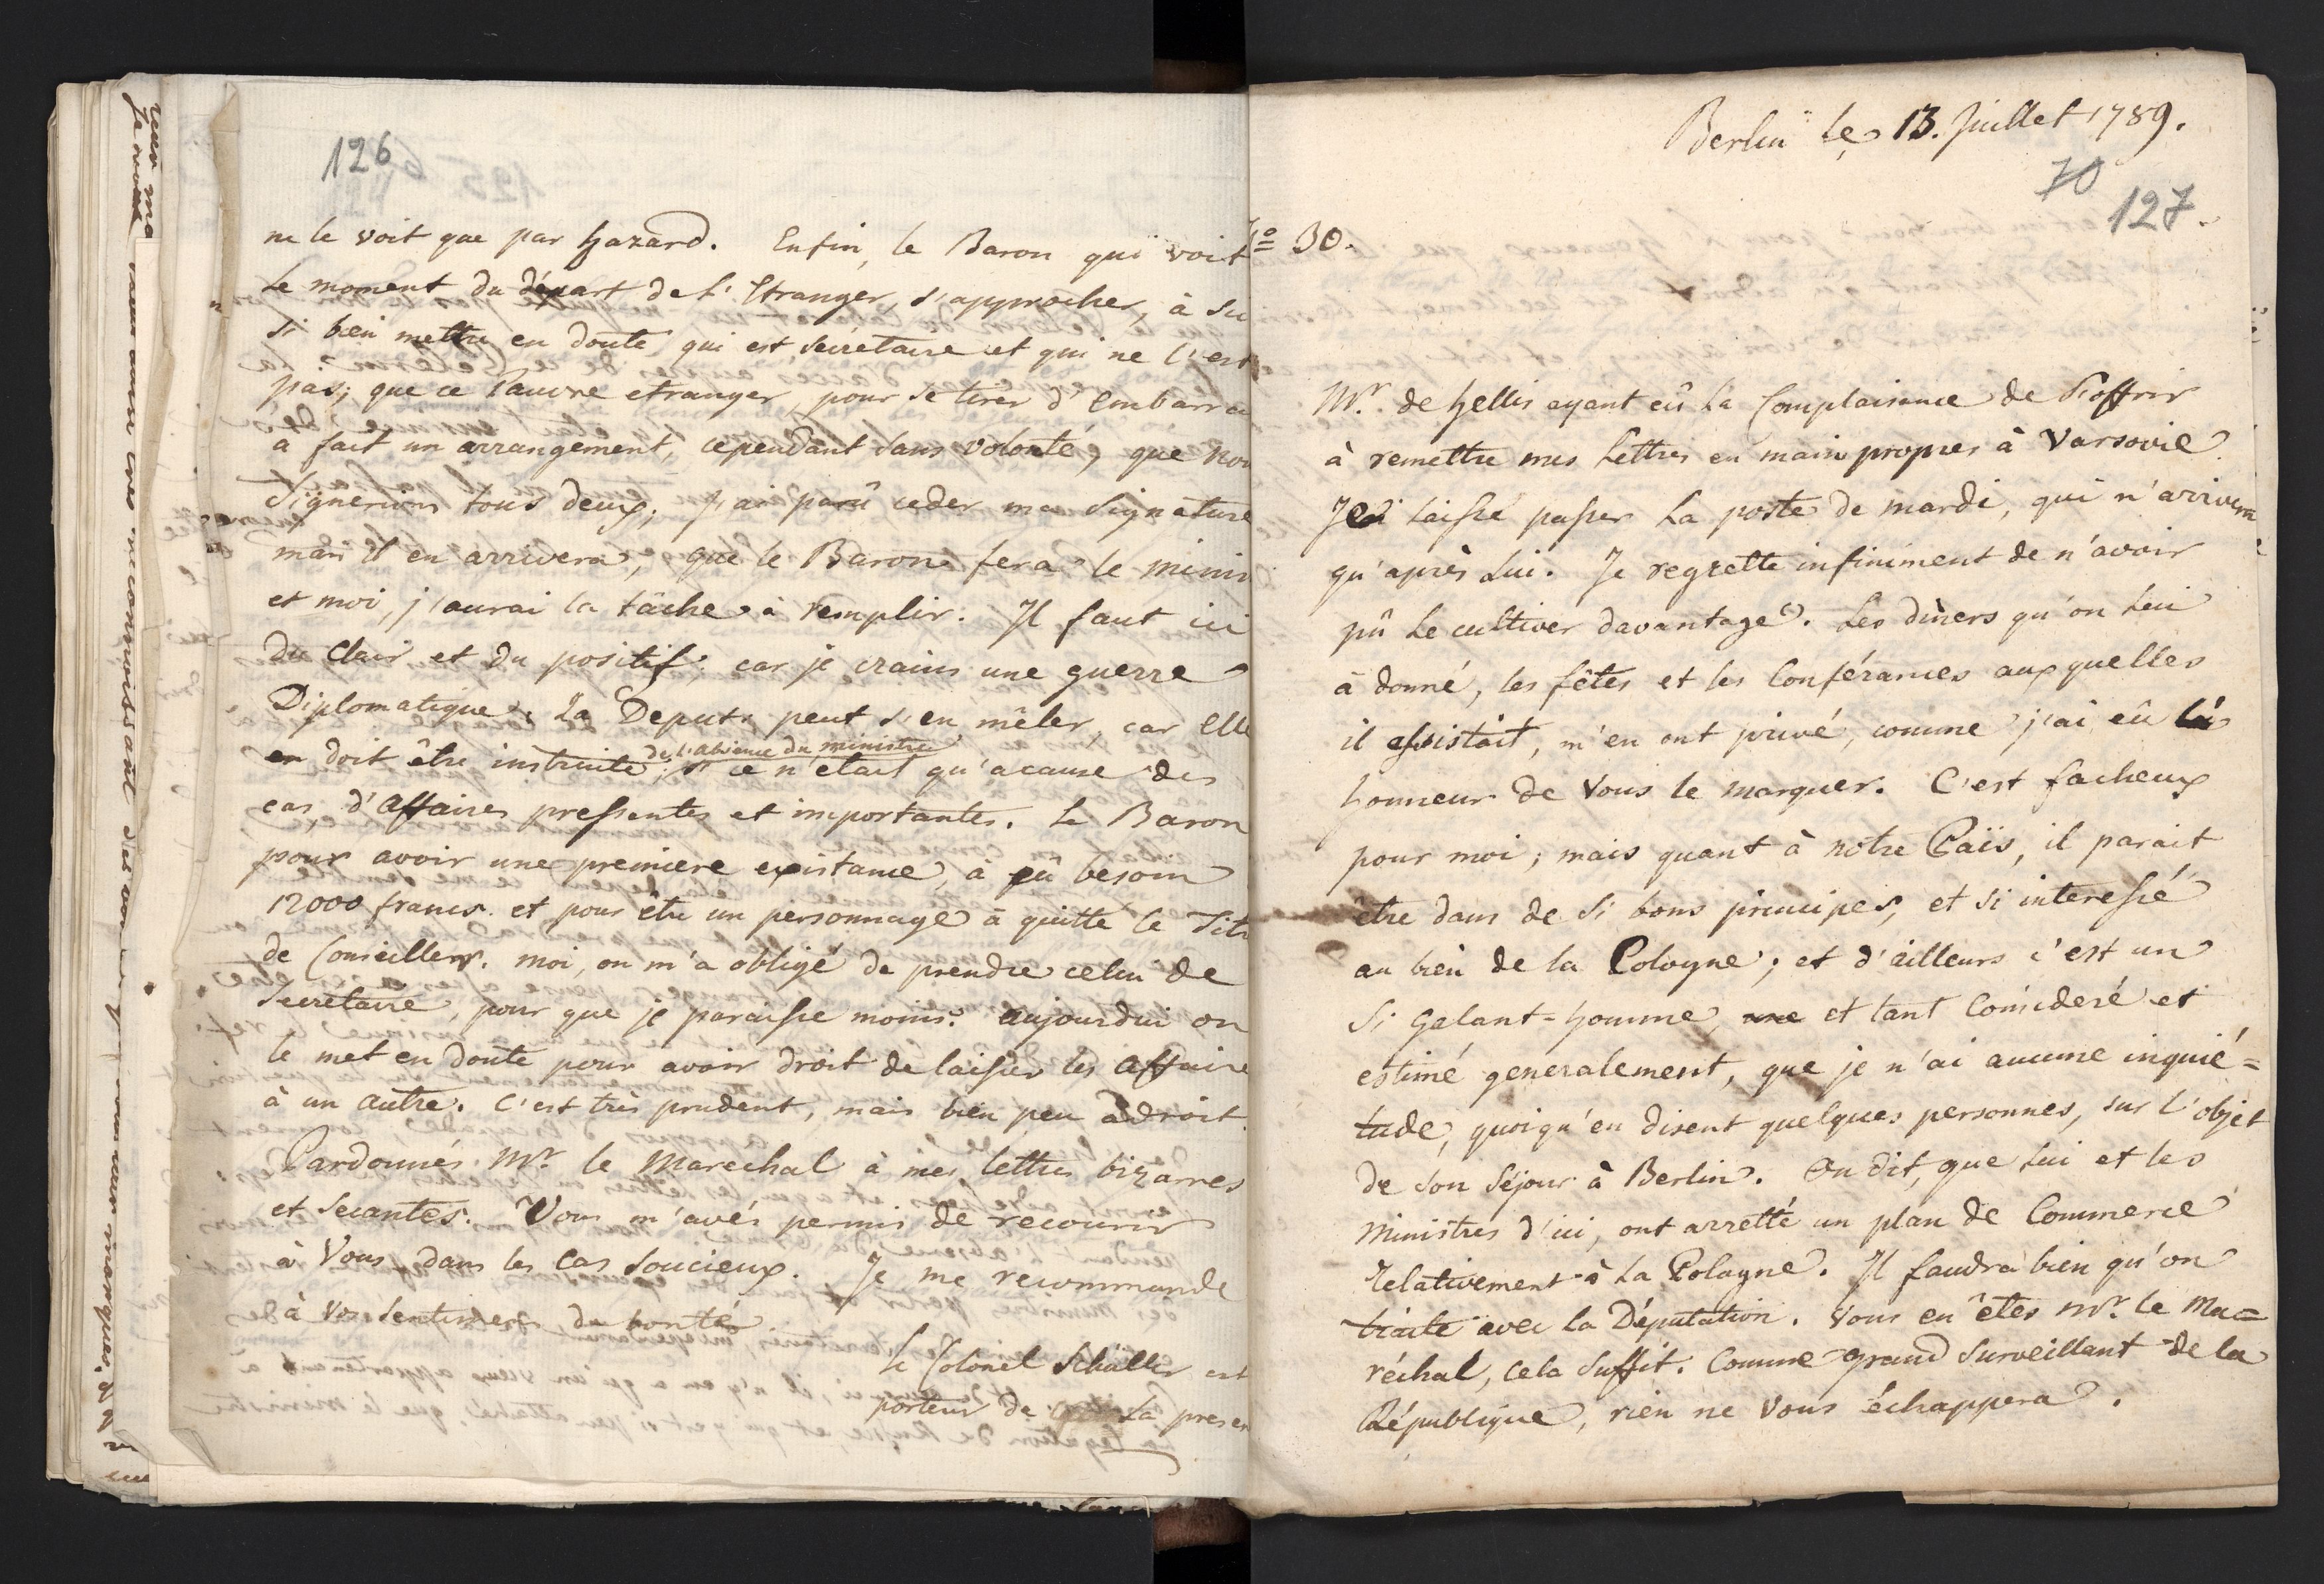 126
ne le voit que par hazard. Enfin, le Baron qui voit
le moment du départ de l'Etranger, s'approcher, à su
si bien mettre en doute, qui est secrétaire et qui ne l'est
pas; que ce Pauvre etranger, pour se tirer d'embarra
a fait un arrangement, cependant sans volonté, que nou
signerions tous deux; j'ai parû ceder ma signature
mais il en arrivera, que le Baron fera le minis
et moi, j'aurai la tâche à remplir. Il faut ici
du clair et du positif; car je crains une guerre
Diplomatique. La Deput: peut s'en mêler, car elle
de l'absence du ministre
en doit être instruite; si ce n'était qu'acause des
cas, d'affaires pressentes et importantes. Le Baron
pour avoir une premiere existance, à eû besoin
12000 francs. et pour être un personnage à quitté le Tit
de Conseiller. moi, on m'a obligé de prendre celui de
Secretaire, pour que je paraisse moins. aujourdui on
le met en doute pour avoir droit de laisser les affaire
à un autre. C'est très prudent, mais bien peu adroit.
Pardonnés Mr. le Marechal à mes lettres bizarres
et secantes. Vous m'avés permis de recourir
à Vous dans les cas soucieux. Je me recommande
à Vos sentimens de bonté
Le Colonel Schüller est
porteur de la presen
Berlin le 13. Juillet 1789.
70
127.
No 30.
Mr. de Hellis ayant eû la Complaisance de s'offrir
à remettre mes Lettres en main propres à Varsovie.
J'ai laissé passer la poste de mardi, qui n'arrivera
qu'après Lui. Je regrette infiniment de n'avoir
pû le cultiver davantage. Les diners qu'on Lui
à donné, les fêtes et les Conférances auxquelles
il assistait, m'en ont privé, comme j'ai eû là
honneur de Vous le marquer. C'est facheux
pour moi; mais quant à notre Païs, il parait
être dans de si bons principes, et si interessé
au bien de la Pologne; et d'ailleurs c'est un
si galant=homme, et tant Consideré et
estimé generalement, que je n'ai aucune inquié=
tude, quoiqu'en disent quelques personnes, sur l'objet
de son séjour à Berlin. On dit, que Lui et les
Ministres d'ici, ont arretté un plan de Commerce
relativement à la Pologne. Il faudra bien qu'on
traite avec la Députation. Vous en êtes Mr. le Ma=
réchal, cela suffit. Comme grand surveillant de la
République, rien ne Vous échappera.